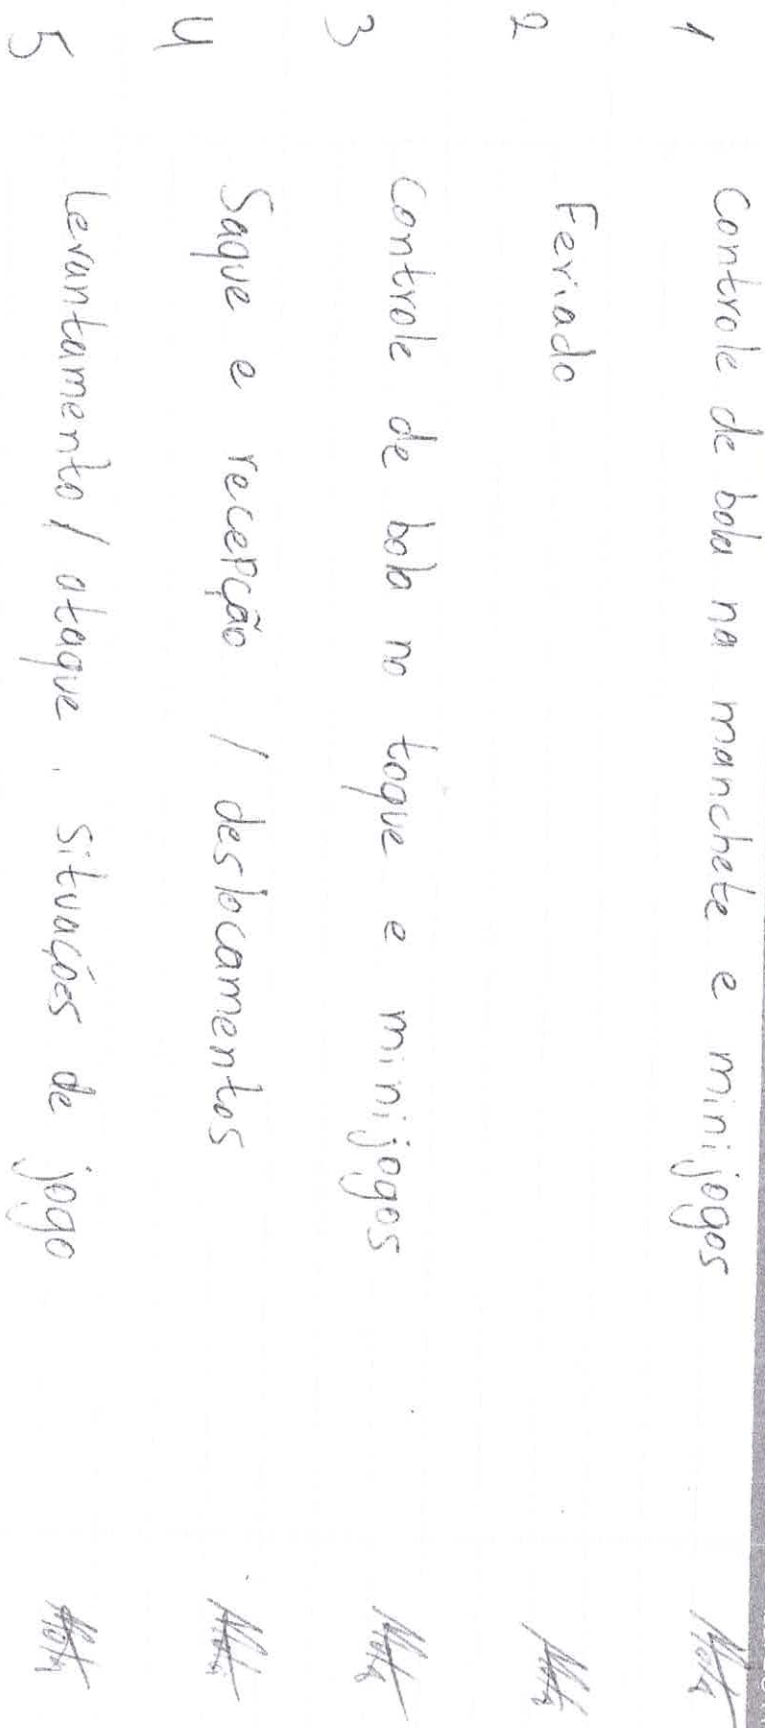 1 Controle de bola na manchete e minijogos
2 Feriado
3 Controle de bola no toque e minijogos
4 Saque e recepção / deslocamentos
5 Levantamento / ataque, situações de jogo